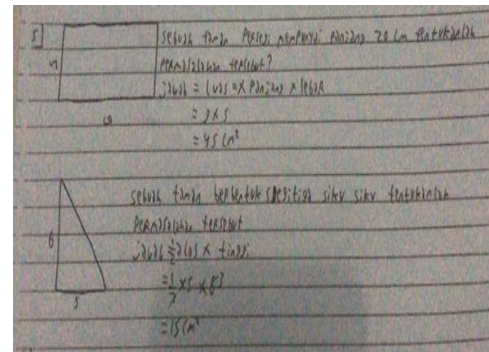 5] sebuah taman Persegi mempunyai Panjang 20 cm tentukanlah
5 Permasalahan tersebut?
Jawab = luas = Panjang x lebar
9 = 9 x 5
= 45 cm²
sebuah taman berbentuk segitiga siku siku tentukanlah
Permasalahan tersebut
6 Jawab ½ alas x tinggi
= 1/2 x 5 x 6 3
5 = 15 cm²